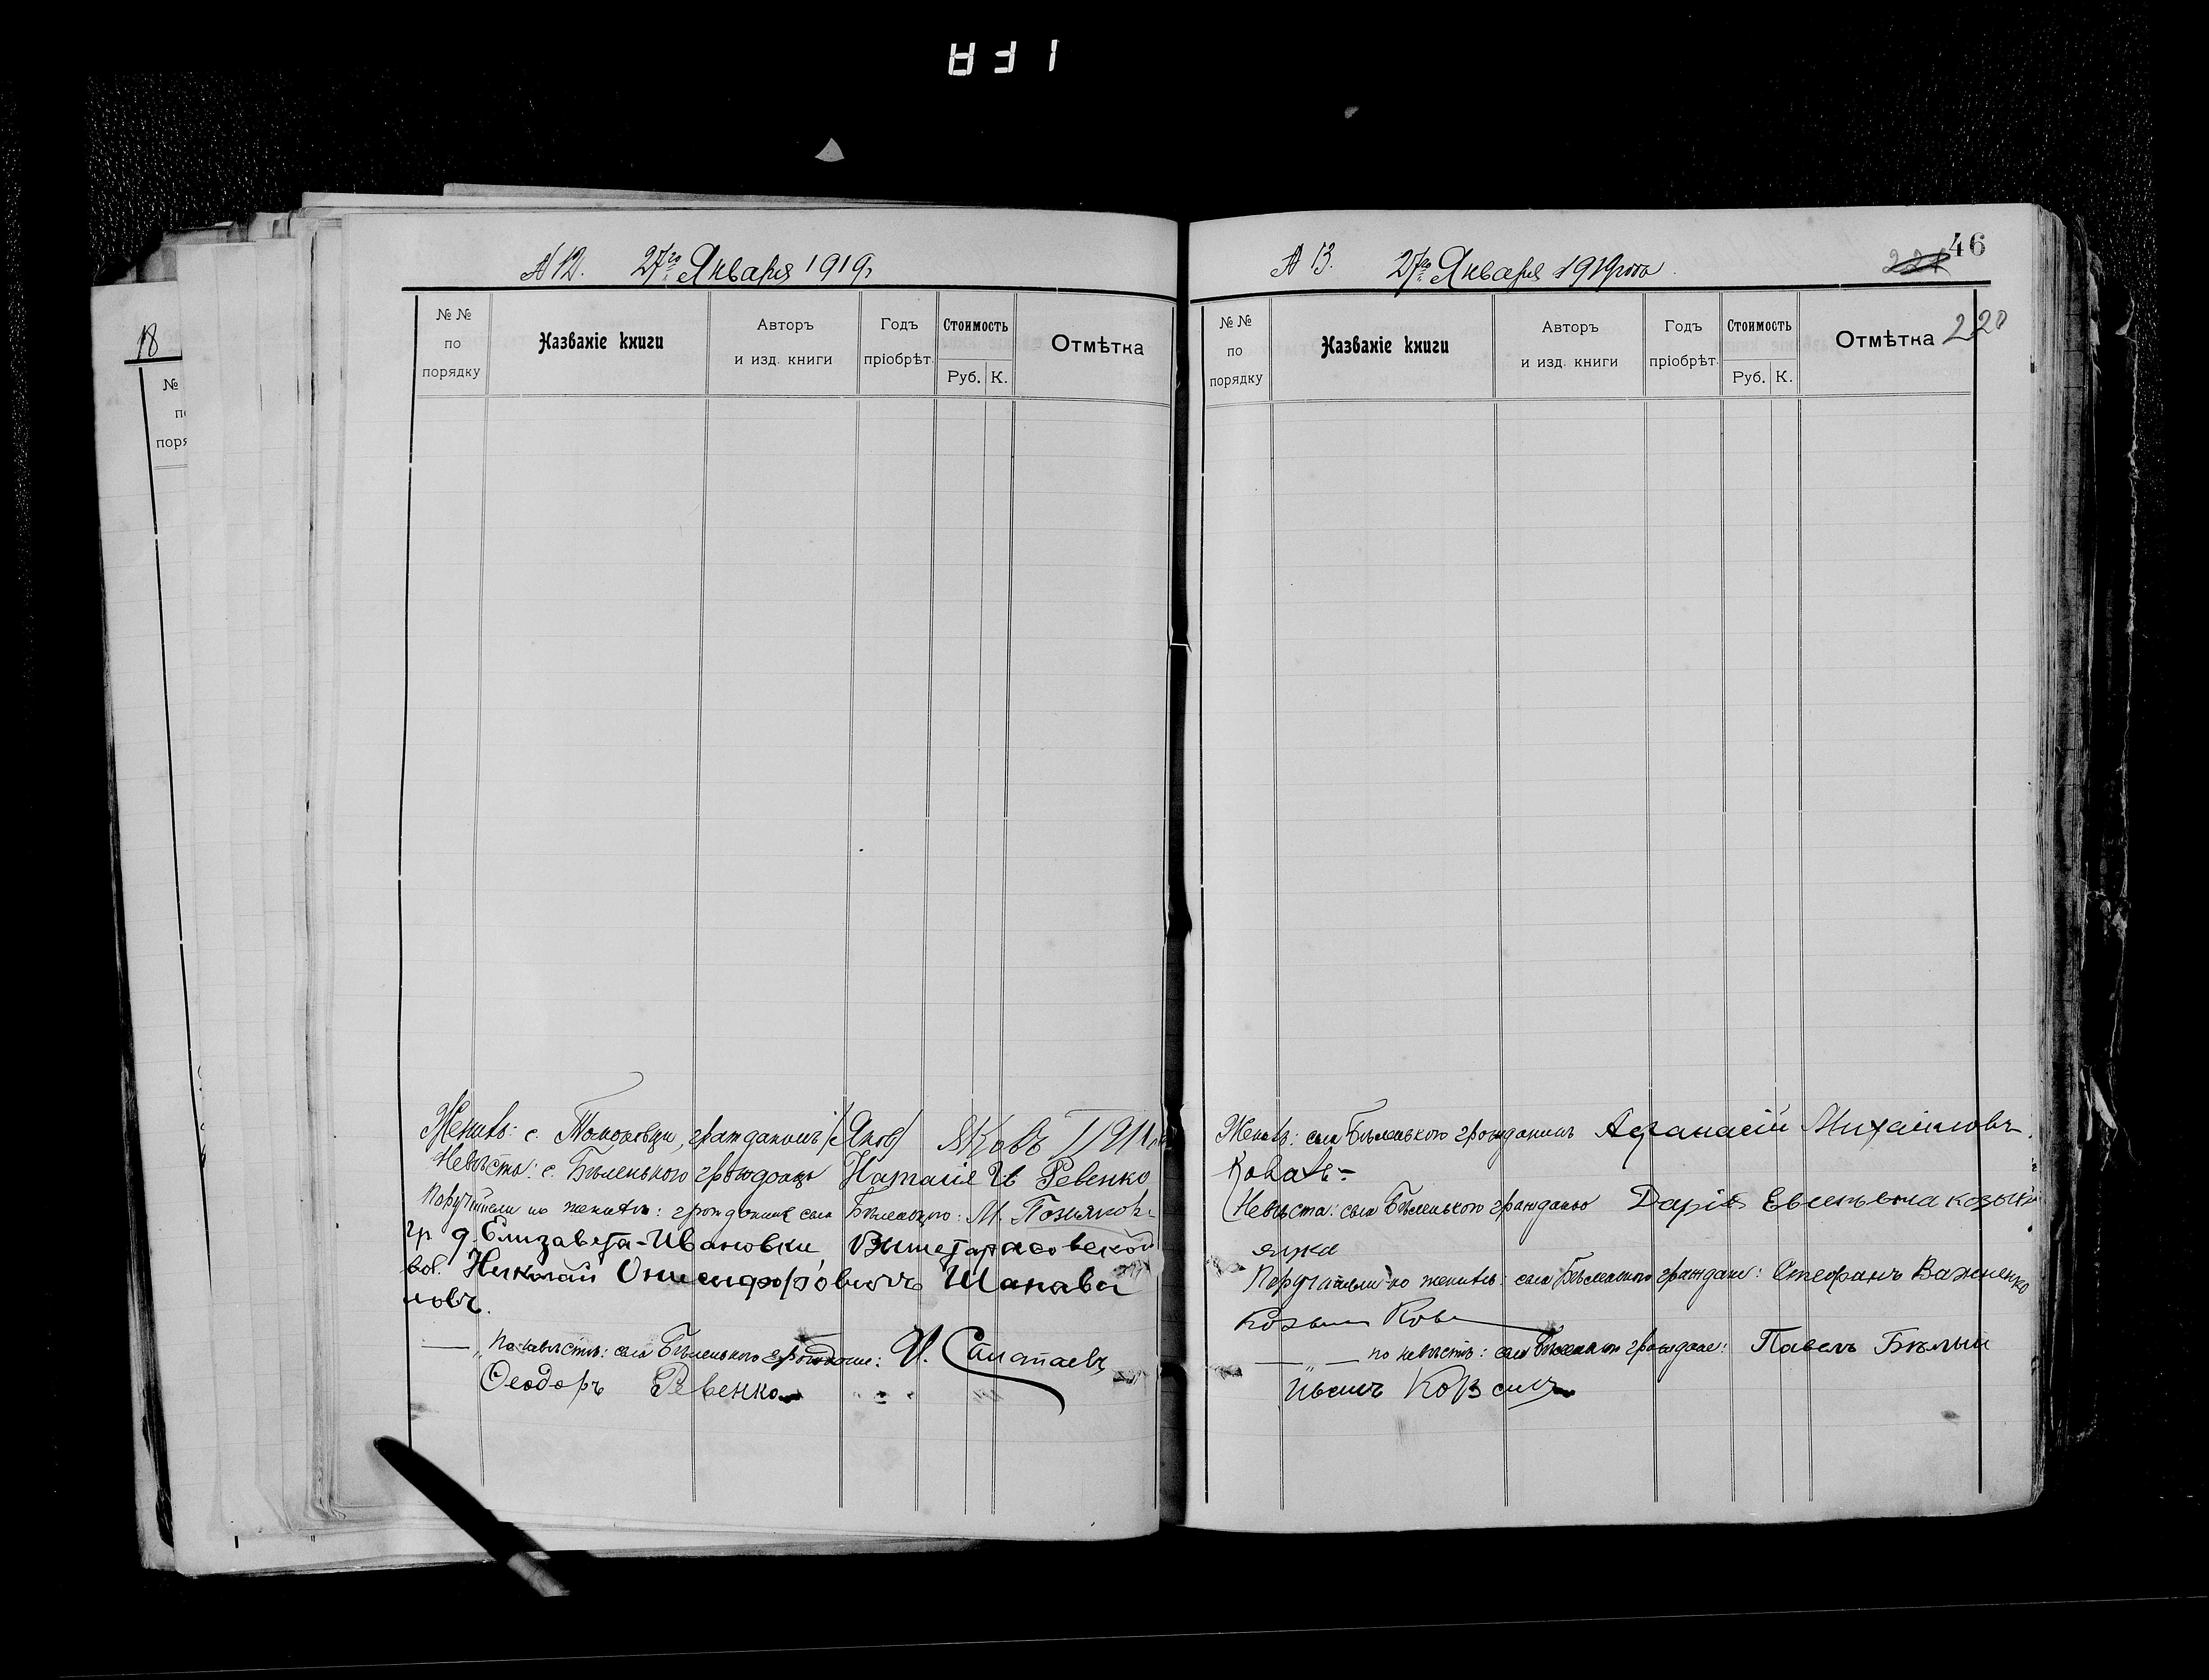 18
№
по
поря
№ 12. 27го Января 1919г.
№№ по порядку
Названіе книги
Авторъ и изд. книги
Годъ пріобрѣт.
Стоимость
Руб. К.
Отмѣтка
Женихъ: с. гражданинъ (Яковъ) Яковъ
Невѣста: с. Бѣленького гражданка Наталія Ив Ревенко
Поручители по женихѣ: гражданинъ села Бѣленького: М. Позняковъ
гр д. Елизавета-Ивановки Вышетарасовской
вол. Николай Онисифоровичъ Шакава
ловъ.
—„ по невѣстѣ: села Бѣленького граждане:
Ѳеодоръ Ревенко
№ 13. 27го Января 1919 года
46
220
№№ по порядку
Названіе книги
Авторъ и изд. книги
Годъ пріобрѣт.
Стоимость
Руб. К.
Отмѣтка
Женихъ: села Бѣленького гражданинъ Афанасій Михайловъ
Коваль
Невѣста: села Бѣленького гражданка Дарія
Поручители по женихѣ: села Бѣленького граждане: Стефанъ Важненко
Козьма
—„— по невѣстѣ: села Бѣленького граждане: Павелъ Бѣлый
Иванъ